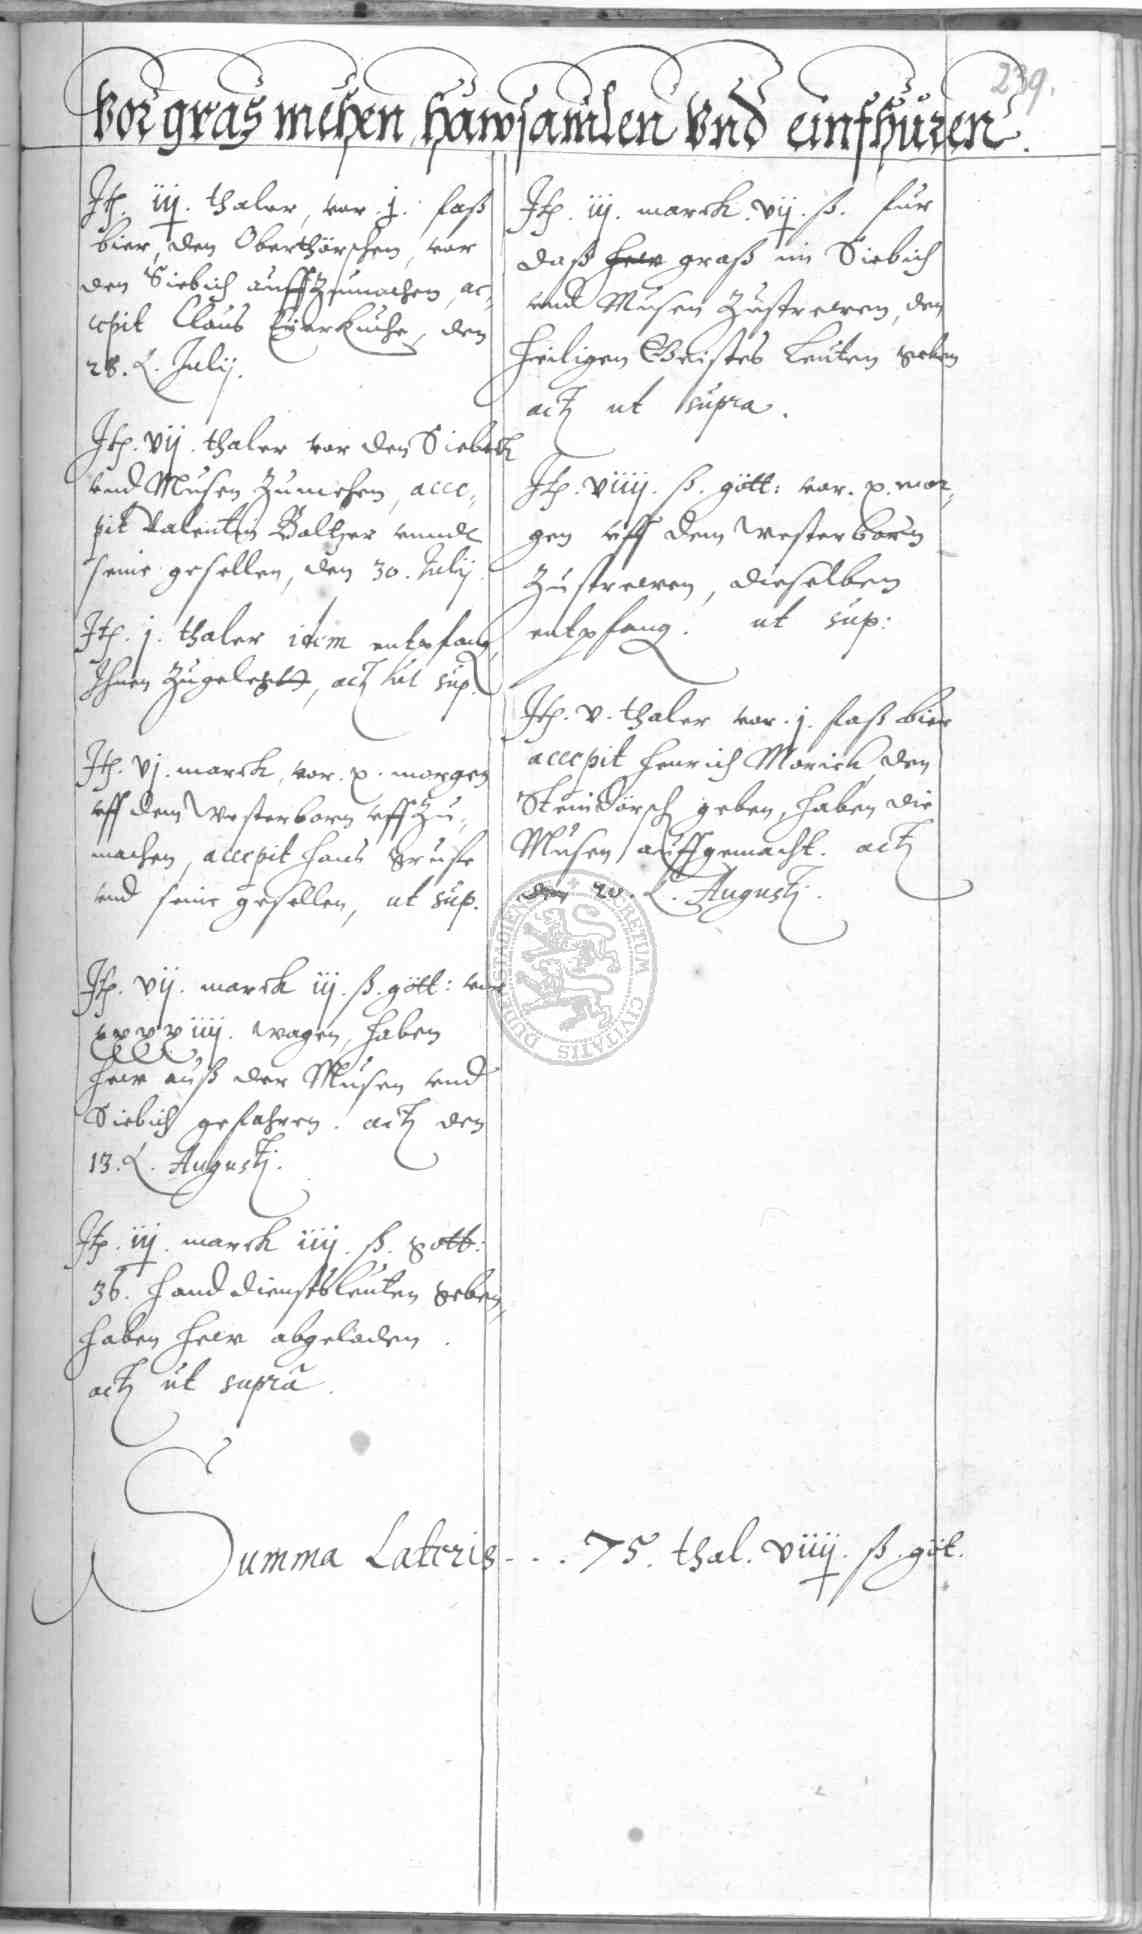 239.
Vor gras mehen, hawsamlen Vnd einfhuren.
Itp. iij. thaler, vor .j. faß
bier, den Oberthörschen, vor
den Siebich auffzumachen, ac-
cepit Claus Eyerkuche, den
28. L. Julij.
Itp. vij. thaler vor den Siebich
vnd Musen zumehen, acce-
pit Valentin Baltzer vnndt
seine gesellen, den 30. Julij.
Itp. j. thaler idem entpfang
Ihnen zugelegt, act ut sup.
Itp. vj. marck, vor .x. morgen
vff dem Westerborn vffzu-
machen, accepit Hans Kruse
vnd seine gesellen, ut sup.
Itp. vij. marck iij. ß. gött: vor
xxxxiiij. wagen, haben
hew auß der Musen vnd
Siebich gefahren. act den
13. L. Augustj.
Itp. iij. marck iiij. ß. gott:
36. handdienstsleuten geben,
haben hew abgeladen.
act ut supra.
Itp. iij. marck. vij. ß. fur
daß hew graß im Siebich
vnd Musen zustrewen, den
Heiligen Geistes leuten geben
act ut supra.
Itp. viiij. ß. gött: vor .x. mor-
gen vff dem Westerborn
zustrewen, dieselben
entpfang. ut sup:
Itp. v. thaler vor .j. faß bier
accepit Henrich Morick, den
Steindörsch geben, haben die
Musen auffgemacht. act
den 20. L. Augustj.
Summa Lateris - . . 75. thal. viiij. ß. göt.
SECRETUM CIVITATIS DUDERSTADIENSIS